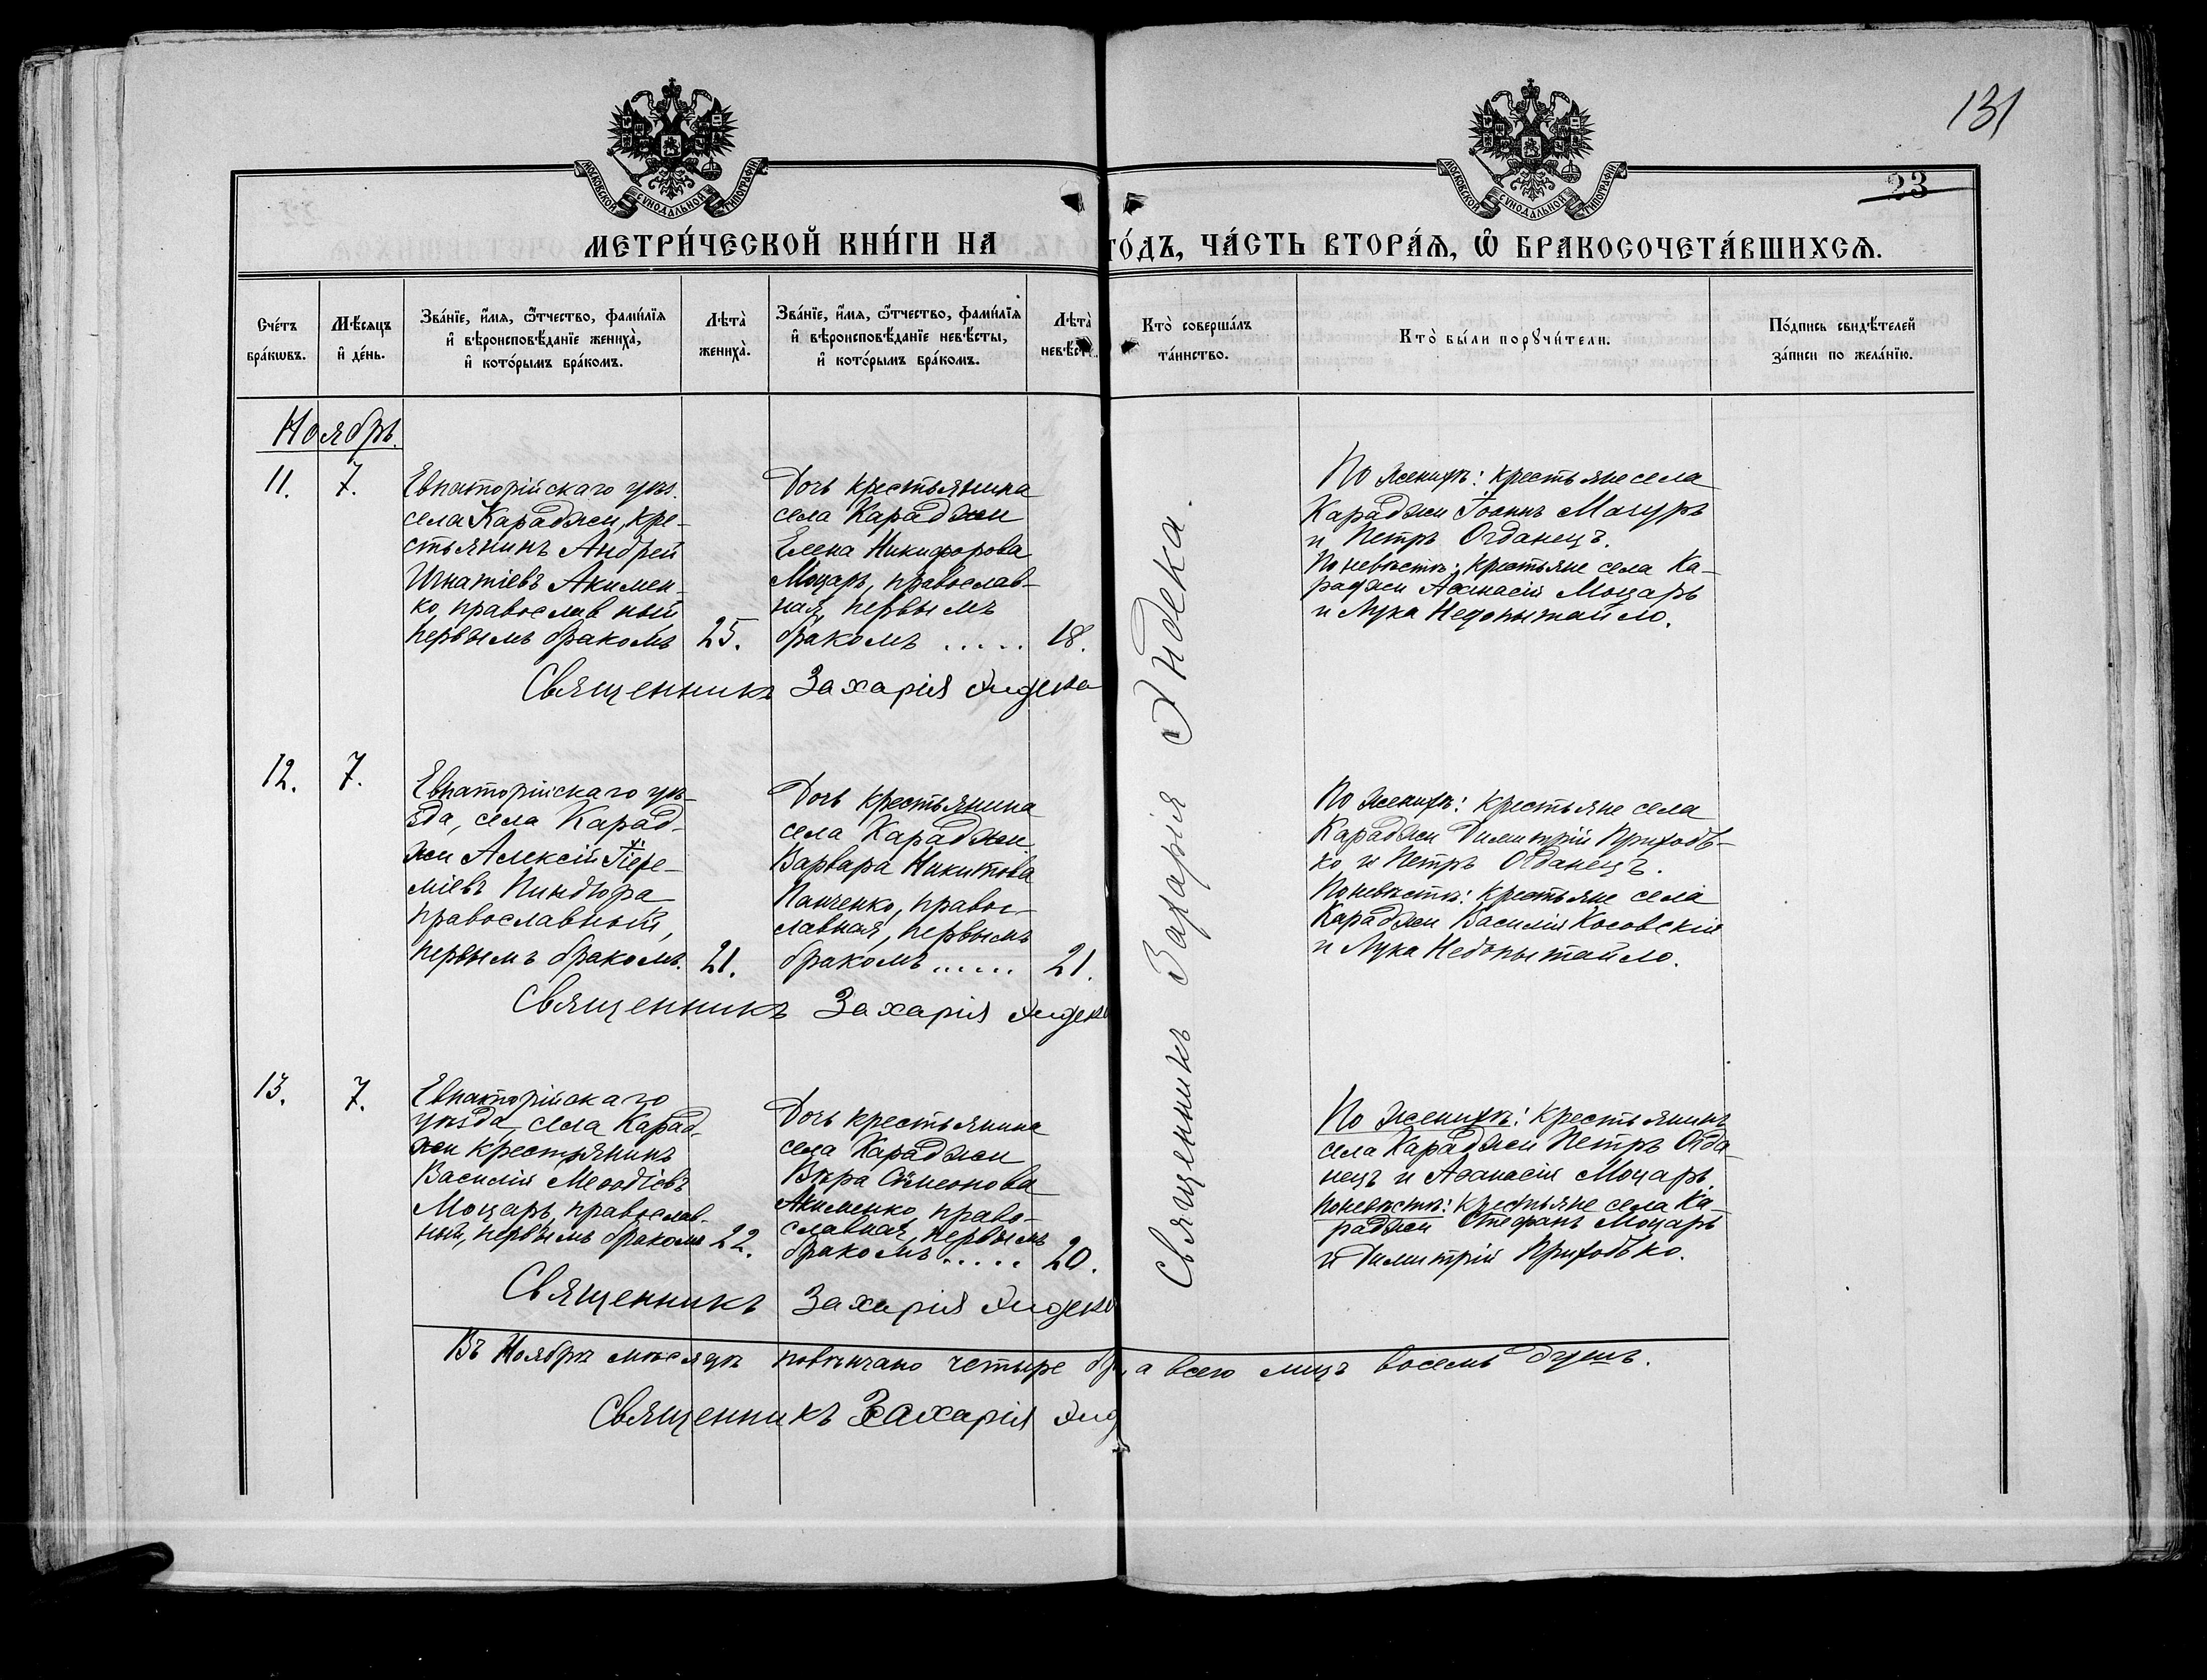 131
23
МОСКОВСКОЙ СѴНОДАЛЬНОЙ ТИПОГРАФІИ
МОСКОВСКОЙ СѴНОДАЛЬНОЙ ТИПОГРАФІИ
МЕТРИ́ЧЕСКОЙ КНИ́ГИ НА ГО́ДЪ, ЧА́СТЬ ВТОРА́Ѧ, Ѽ БРАКОСОЧЕТА́ВШИХСѦ.
Сче́тъ бра́кωвъ.
Мѣ́сяцъ и҆ де́нь.
Зва́нїе, и҆́мя, ѻ҆́тчество, фами́лїя
и҆ вѣроисповѣ́данїе жениха̀,
и҆ кото́рымъ бра́комъ.
Лѣта̀ жениха̀.
Зва́нїе, и҆́мя, ѻ҆́тчество, фами́лїя
и҆ вѣроисповѣ́данїе невѣ́сты,
и҆ кото́рымъ бра́комъ.
Лѣта̀ невѣ́ст
Кто̀ соверша́лъ та́инство.
Кто̀ бы́ли порꙋчи́тели.
По́дпись свидѣ́телей за́писи по жела́нїю.
Ноябрь.
11. 7.
Евпаторійскаго уѣз.
села Караджи, кре-
стьянинъ Андрей
Игнатіевъ Акимен-
ко, православный
первымъ бракомъ 25.
Дочь крестьянина
села Караджи
Елена Никифорова
Моцарь, православ-
ная, первымъ
бракомъ ..... 18.
Священникъ Захарія Индека
По женихѣ: крестьяне села
Караджи Іоаннъ Моцарь
и Петръ Огданецъ.
По невѣстѣ: крестьяне села Ка-
раджи Аѳанасій Моцарь
и Лука Недопытайло.
12. 7.
Евпаторійскаго уѣ-
зда, села Карад-
жи Алексій Іере-
міевъ Пиндюра
православный,
первымъ бракомъ. 21.
Дочь крестьянина
села Караджи
Варвара Никитова
Панченко, правос-
лавная, первымъ
бракомъ ..... 21.
Священникъ Захарія
По женихѣ: крестьяне села
Караджи Димитрій Приходь-
ко и Петръ Огданецъ.
По невѣстѣ: крестьяне села
Караджи Василій Косовскій
и Лука Недопытайло.
13. 7.
Евпаторійскаго
уѣзда, села Карад-
жи крестьянинъ
Василій Меѳодіевъ
Моцарь, православ-
ный, первымъ бракомъ 22.
Дочь крестьянина
села Караджи
Вѣра Симеонова
Акименко, право-
славная, первымъ
бракомъ ..... 20.
Священникъ Захарія
По женихѣ: крестьянинъ
села Караджи Петръ Огда-
нецъ и Аѳанасій Моцарь.
По невѣстѣ: крестьяне села Ка-
раджи Стефанъ Моцарь
и Димитрій Приходько.
Священникъ Захарія Индека.
Въ Ноябрѣ мѣсяцѣ повѣнчано четыре бр, а всего лицъ восемь душъ.
Священникъ Захарія